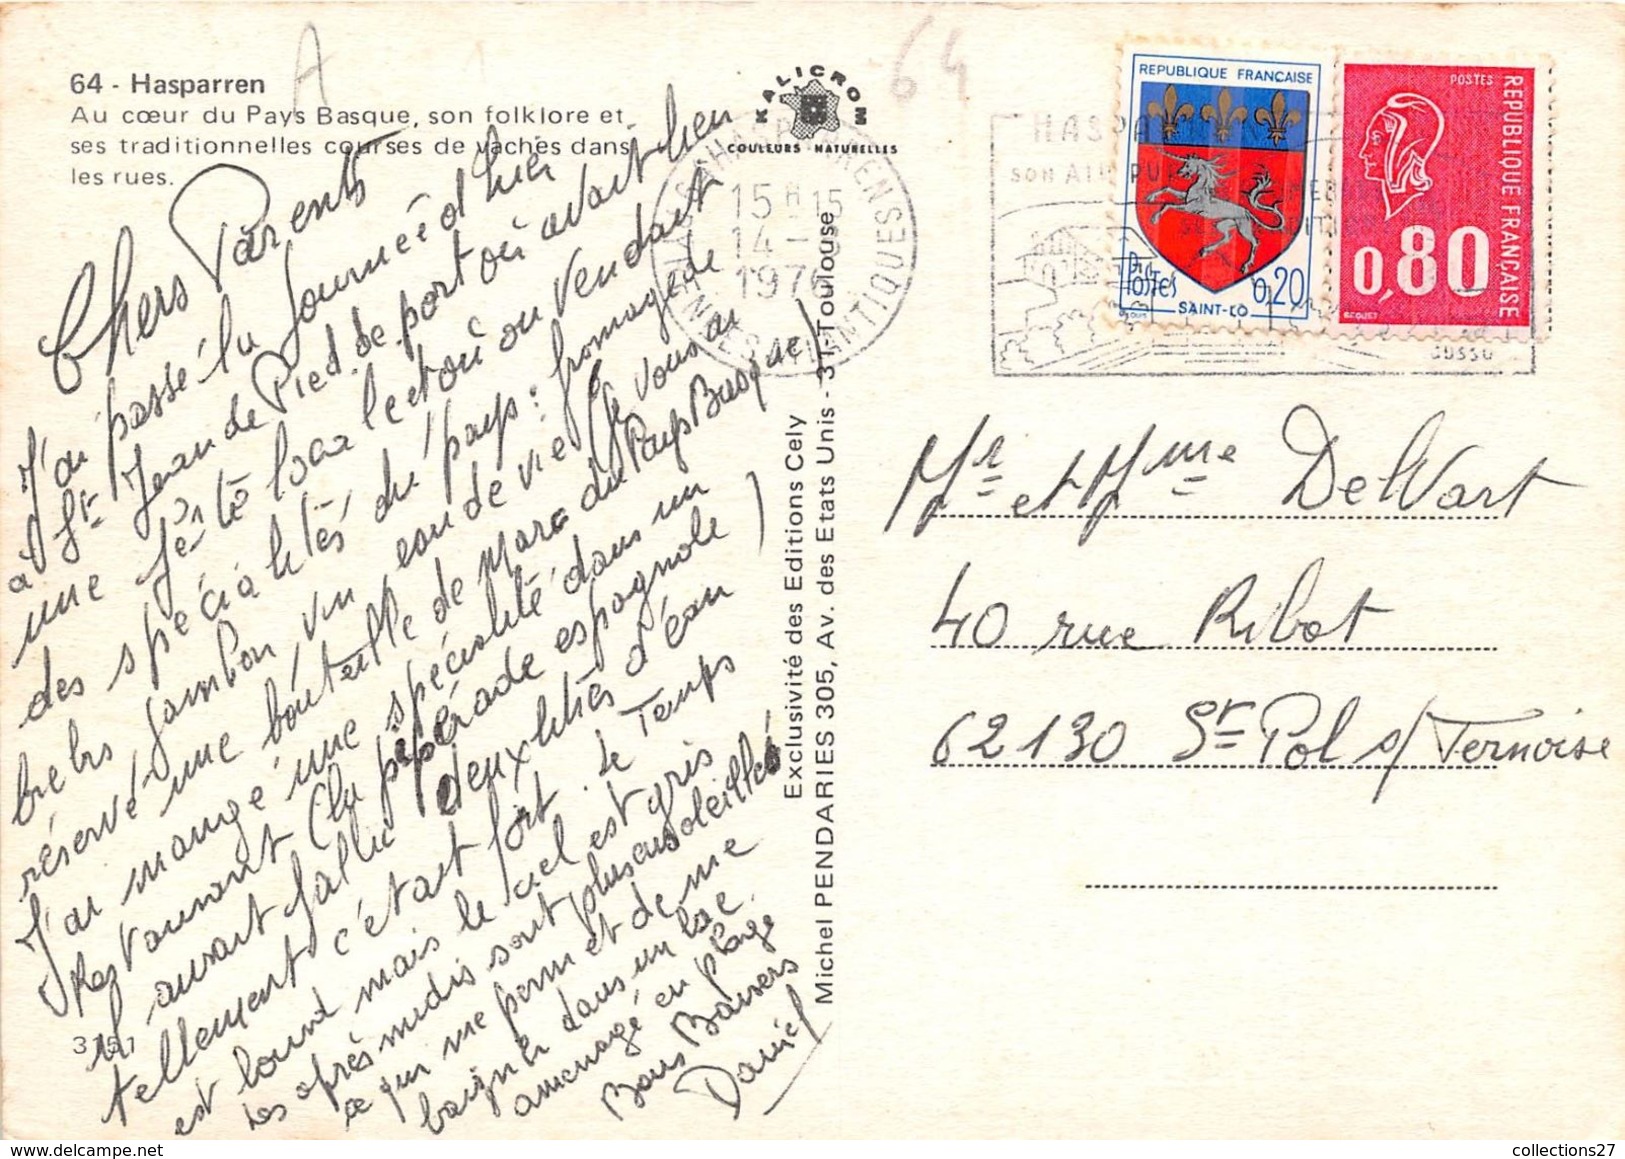 64 - Hasparren
Au cœur du Pays Basque, son folklore et
ses traditionnelles courses de vaches dans
les rues.
KALICROM
COULEURS NATURELLES
A
64
Chers Parents
J'ai passé la journée d'hier
à St Jean de Pied de port où avait lieu
une fête locale et où on vendait
des spécialités du pays : fromage de
brebis jambon vin eau de vie (je vous ai
réservé une bouteille de marc du Pays Basque)
J'ai mangé une spécialité dans un
Restaurant (la pipérade espagnole)
il aurait fallu deux litres d'eau
tellement c'était fort. Le Temps
est lourd mais le ciel est gris
Les après midis sont plus ensoleillés
ce qui me permet de me
baigner dans un lac
aménagé en plage
Bons Baisers
Daniel
3151
Exclusivité des Editions Cely
Michel PENDARIES 305, Av. des Etats Unis - 31-Toulouse
HASPARREN
15 H 15
14 -
1976
PYRENEES ATLANTIQUES
HASPA
SON AIR PUR
REPUBLIQUE FRANÇAISE
POSTES
0,20
SAINT-LO
POSTES
REPUBLIQUE FRANÇAISE
0,80
BEQUET
Mr et Mme Delvart
40 rue Ribot
62130 St Pol s/ Ternoise
collections27